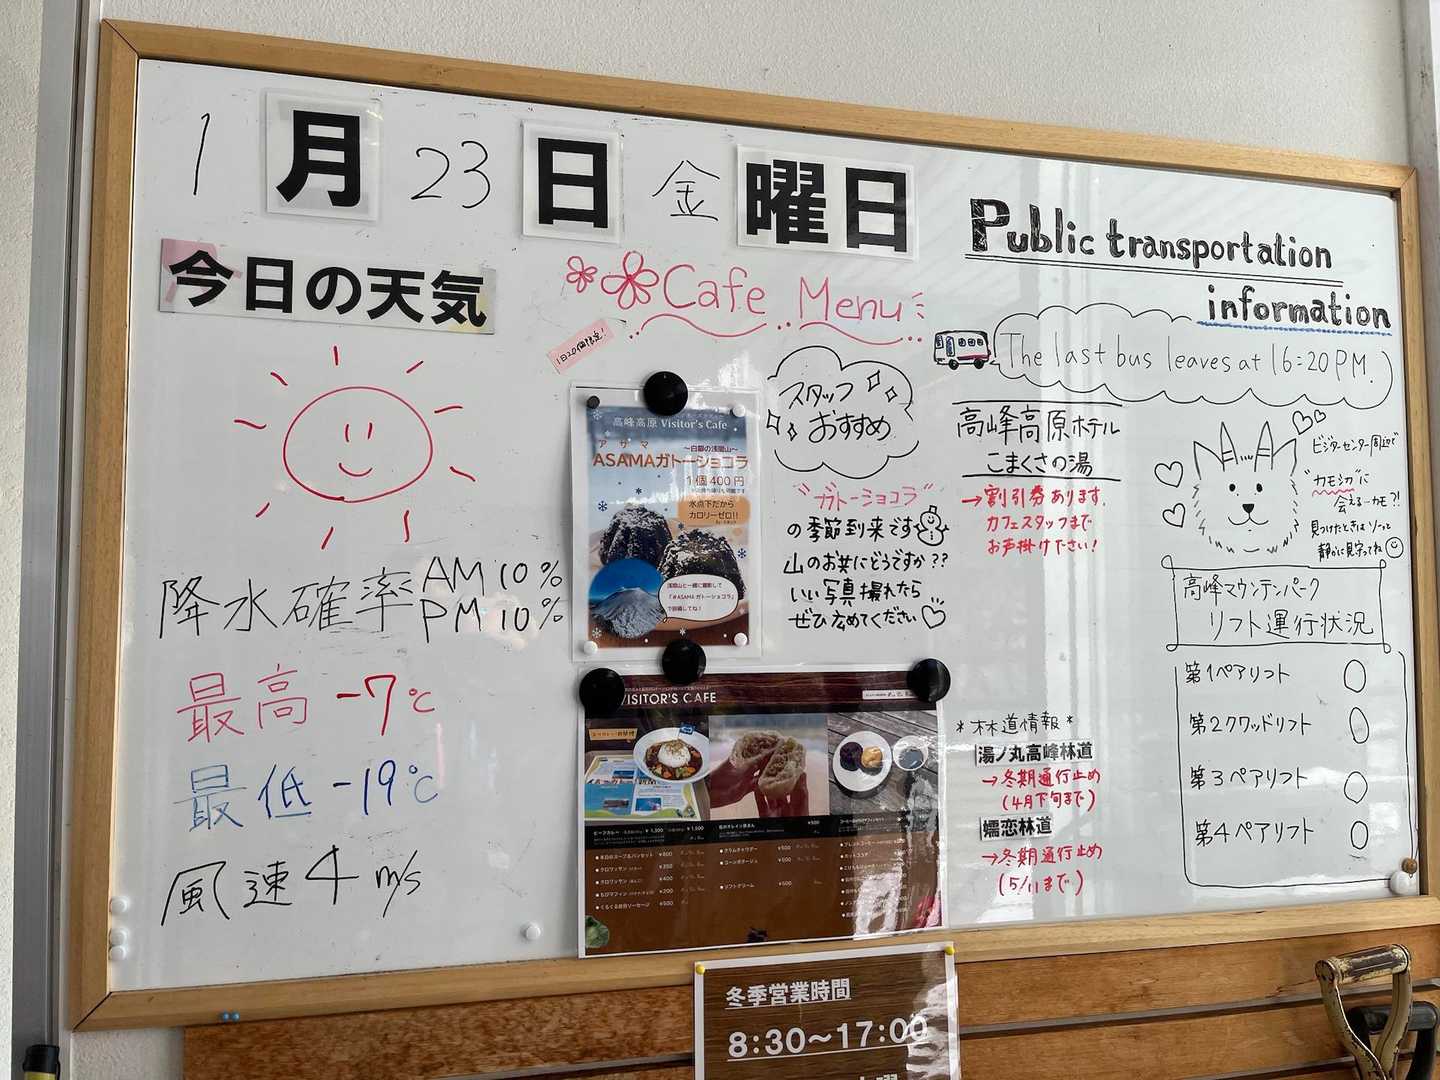 1月23日金曜日
今日の天気
降水確率 AM 10%
PM 10%
最高 -7℃
最低 -19℃
風速 4 m/s
Cafe Menu
1日20個限定!
高峰高原 Visitor's Cafe
アサマ
～白銀の浅間山～
ASAMAガトーショコラ
1個400円
氷点下だから
カロリーゼロ!!
浅間山と一緒に撮影して
「#ASAMAガトーショコラ」
で投稿してね!
スタッフ
おすすめ
"ガトーショコラ"
の季節到来です
山のお共にどうですか??
いい写真撮れたら
ぜひ広めてください
VISITOR'S CAFE
ビーフカレー
¥1,300
¥1,500
本日のスープ&パンセット ¥800
クロワッサン ¥350
クロワッサン ¥400
¥200
¥500
¥500
クラムチャウダー ¥500
コーンポタージュ ¥500
ソフトクリーム ¥500
Public transportation
information
The last bus leaves at 16:20 PM.
高峰高原ホテル
こまくさの湯
→割引券あります。
カフェスタッフまで
お声掛け下さい!
ビジターセンター周辺で
"カモシカ"に
会える…カモ?!
見つけたときはソーッと
静かに見守ってね
*林道情報*
湯ノ丸高峰林道
→冬期通行止め
(4月下旬まで)
嬬恋林道
→冬期通行止め
(5/11まで)
高峰マウンテンパーク
リフト運行状況
第1ペアリフト ○
第2クワッドリフト ○
第3ペアリフト ○
第4ペアリフト ○
冬季営業時間
8:30～17:00